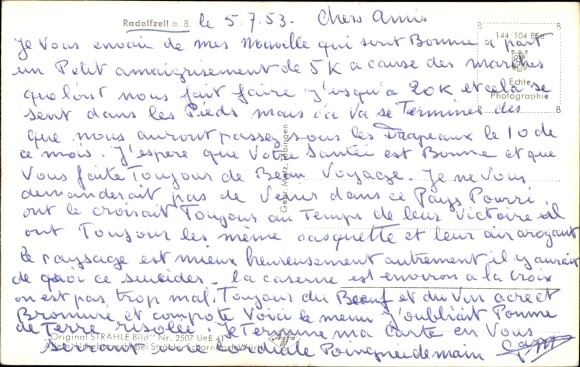 Radolfzell a. B. le 5.7.53. Chers Amis
Je Vous envoie de mes Nouvelle qui sont Bonne a part
un Petit amaigrisement de 5K a cause des marches
que l'ont nous fait faire j'usqu'a 20K et cela se
sent dans les Pieds mais ça Va se Terminer des
que nous auront passez sous les Drapeaux le 10 de
ce mois. J'espere que Votre Santée est Bonne et que
Vous faite Toujour de Beau Voyage. Je ne Vous
demanderait pas de Venir dans ce Pays Pourri
ont le croirait Toujour au Temps de leur Victoire il
ont Toujour les même casquette et leur air arrogant
Le paysage est mieux heureusement autrement il y aurait
de quoi ce suicider. La caserne est environ a la Croix
on est pas trop mal. Toujour du Boeuf et du Vin acre et
Bromure et compote Voici le menu j'oubliait Pomme
de Terre rissolée. Je Termine ma Carte en Vous
cordiale Poingnée de main
144/104 Ese
Echte
Photographie
Gebr. Metz, Tübingen
"Original STRÄHLE Bild" Nr. 2507 UeE 41